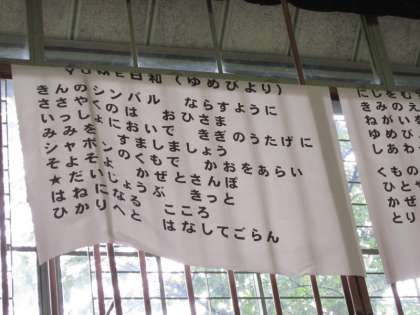 YUME日和(ゆめびより)
きんのシンバル ならすように
ささやくのは おひさま
いっしょにおいで きぎのうたげに
みみを すましましょう
シャボンのくもで かおをあらい
そよそよ かぜとさんぽ
★だいじょうぶ きっと
はねになる こころ
ひかりへと はなしてごらん
にじをむ
きみの
ねがい
ゆめび
しあわ
くもの
ひと
かぜ
とり